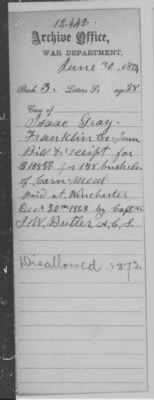 12.442
Archive Office,
WAR DEPARTMENT,
June 30, 1874
Book 3. Letters S. page 28
Case of
Isaac Gray.
Franklin Co. Tenn
Bill & receipt for
for 158 bushels
of Corn Meal
paid at Winchester
Dec 20th 1863 by Capt
J.W. Butler A.C.S.
Disallowed 1873.